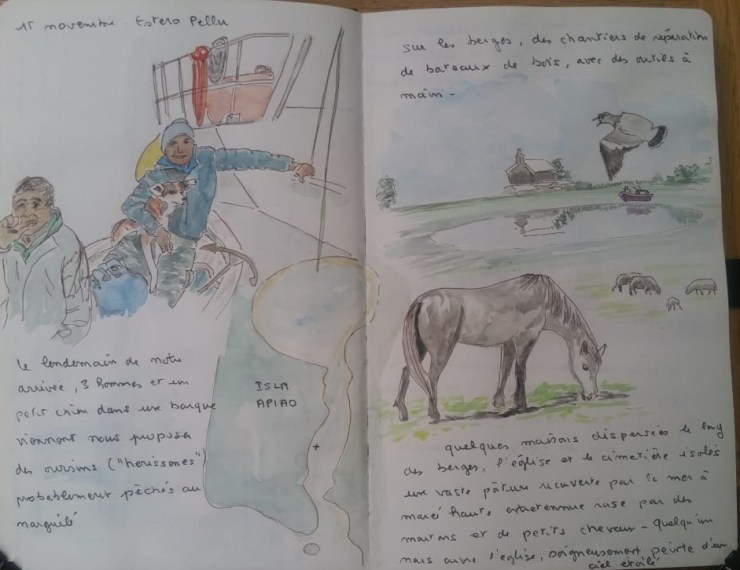 15 novembre - Estero Pellu
le lendemain de notre
arrivée, 3 hommes et un
petit chien dans une barque
viennent nous proposer
des oursins ("herissones")
probablement pêchés au
narguilé
ISLA
APIAO
sur les berges, des chantiers de réparation
de bateaux de bois, avec des outils à
main -
quelques maisons dispersées le long
des berges, l'église et le cimetière isolés
une vaste pâture recouverte par la mer à
marée haute entretenue rase par des
moutons et de petits chevaux - quelqu'un
nous ouvre l'église, soigneusement peinte d'un
ciel étoilé